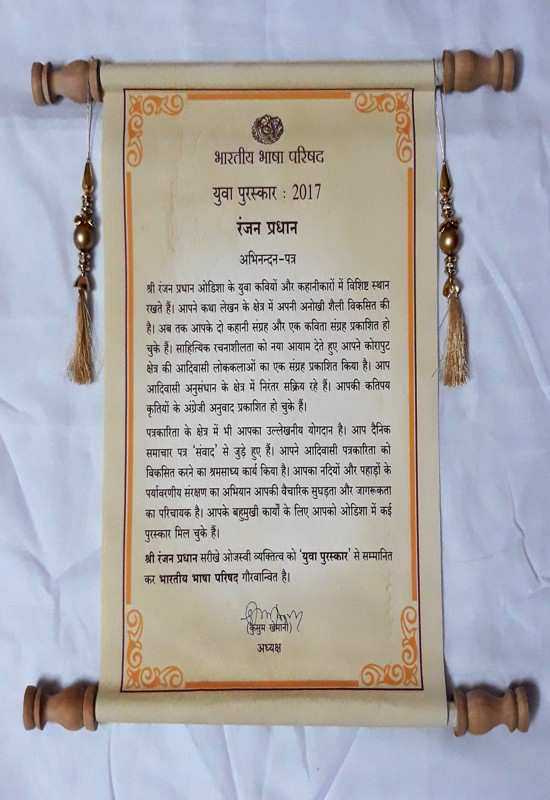 भारतीय भाषा परिषद
युवा पुरस्कार : 2017
रंजन प्रधान
अभिनन्दन-पत्र
श्री रंजन प्रधान ओडिशा के युवा कवियों और कहानीकारों में विशिष्ट स्थान
रखते हैं। आपने कथा लेखन के क्षेत्र में अपनी अनोखी शैली विकसित की
है। अब तक आपके दो कहानी संग्रह और एक कविता संग्रह प्रकाशित हो
चुके हैं। साहित्यिक रचनाशीलता को नया आयाम देते हुए आपने कोरापुट
क्षेत्र की आदिवासी लोककलाओं का एक संग्रह प्रकाशित किया है। आप
आदिवासी अनुसंधान के क्षेत्र में निरंतर सक्रिय रहे हैं। आपकी कतिपय
कृतियों के अंग्रेजी अनुवाद प्रकाशित हो चुके हैं।
पत्रकारिता के क्षेत्र में भी आपका उल्लेखनीय योगदान है। आप दैनिक
समाचार पत्र ‘संवाद’ से जुड़े हुए हैं। आपने आदिवासी पत्रकारिता को
विकसित करने का श्रमसाध्य कार्य किया है। आपका नदियों और पहाड़ों के
पर्यावरणीय संरक्षण का अभियान आपकी वैचारिक सुघड़ता और जागरूकता
का परिचायक है। आपके बहुमुखी कार्यों के लिए आपको ओडिशा में कई
पुरस्कार मिल चुके हैं।
श्री रंजन प्रधान सरीखे ओजस्वी व्यक्तित्व को ‘युवा पुरस्कार’ से सम्मानित
कर भारतीय भाषा परिषद गौरवान्वित है।
(कुसुम खेमानी)
अध्यक्ष